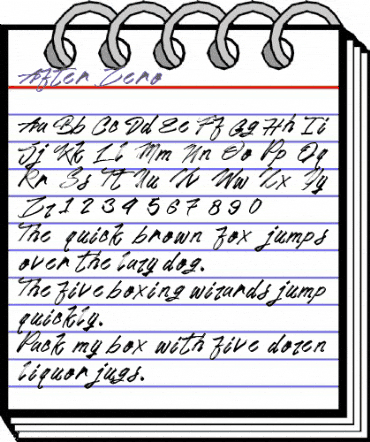 After Zero
Aa Bb Cc Dd Ee Ff Gg Hh Ii
Jj Kk Ll Mm Nn Oo Pp Qq
Rr Ss Tt Uu Vv Ww Xx Yy
Zz 1 2 3 4 5 6 7 8 9 0
The quick brown fox jumps
over the lazy dog.
The five boxing wizards jump
quickly.
Pack my box with five dozen
liquor jugs.